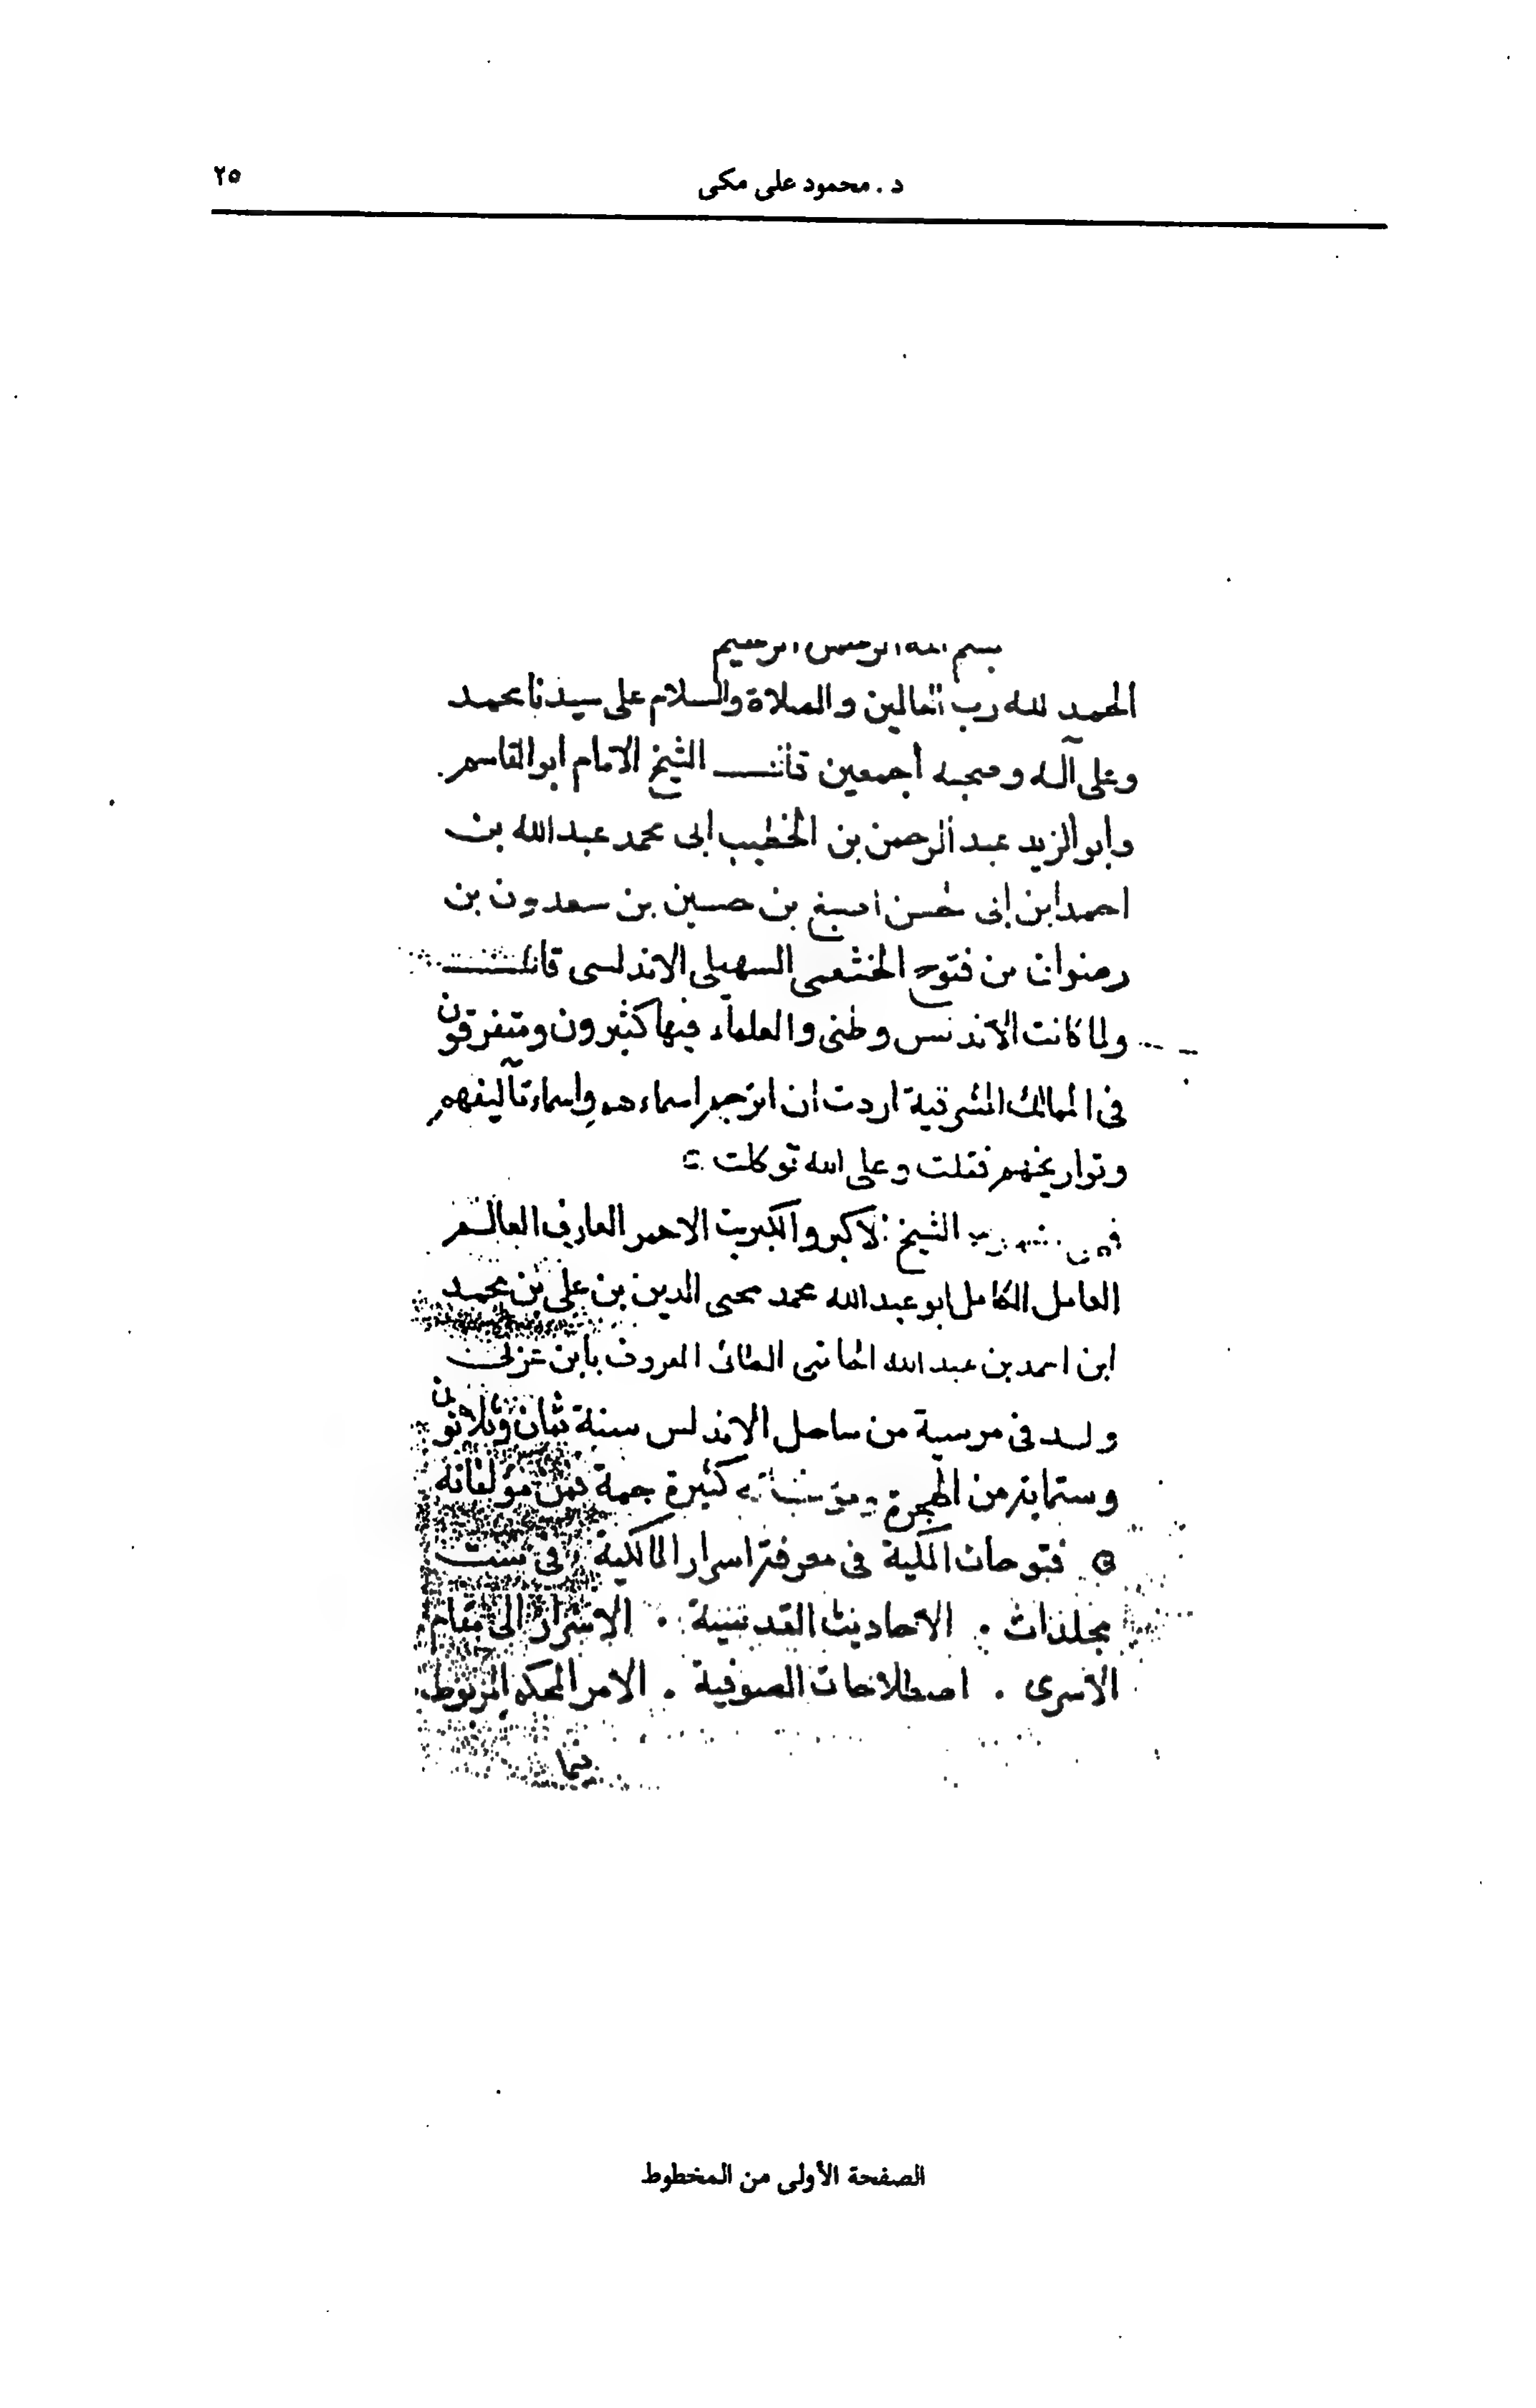 د. محمود على مكى
٢٥
بسم الله الرحمن الرحيم
الحمد لله رب العالمين والصلاة والسلام على سيدنا محمد
وعلى آله وصحبه أجمعين قال الشيخ الامام ابو القاسم
وابو الزيد عبد الرحمن بن الخطيب ابى محمد عبد الله بن
احمد ابن ابى حسن اصبغ بن حسين بن سعدون بن
رضوان بن فتوح الخثعمى السهيلى الاندلسى قال
ولما كانت الاندلس وطنى والعلماء فيها كثيرون ومتفرقون
فى الممالك المشرقية اردت ان اترجم اسماءهم واسماء تآليفهم
وتواريخهم فقلت وعلى الله توكلت
الشيخ الاكبر والكبريت الاحمر العارف العالم
العامل الكامل ابو عبد الله محمد محيى الدين بن على بن محمد
ابن احمد بن عبد الله الحاتمى الطائى المعروف بابن عربى
ولد فى مرسية من ساحل الاندلس سنة ثمان وثلاثون
وستماية من الهجرة كثيرة جمة فمن مؤلفاته
فتوحات المكية فى معرفة اسرار المالكية فى ست
مجلدات . الاحاديث القدسية . الاسرار الى مقام
الاسرى . اصطلاحات الصوفية . الامر المحكم المربوط
فيما
الصفحة الأولى من المخطوط